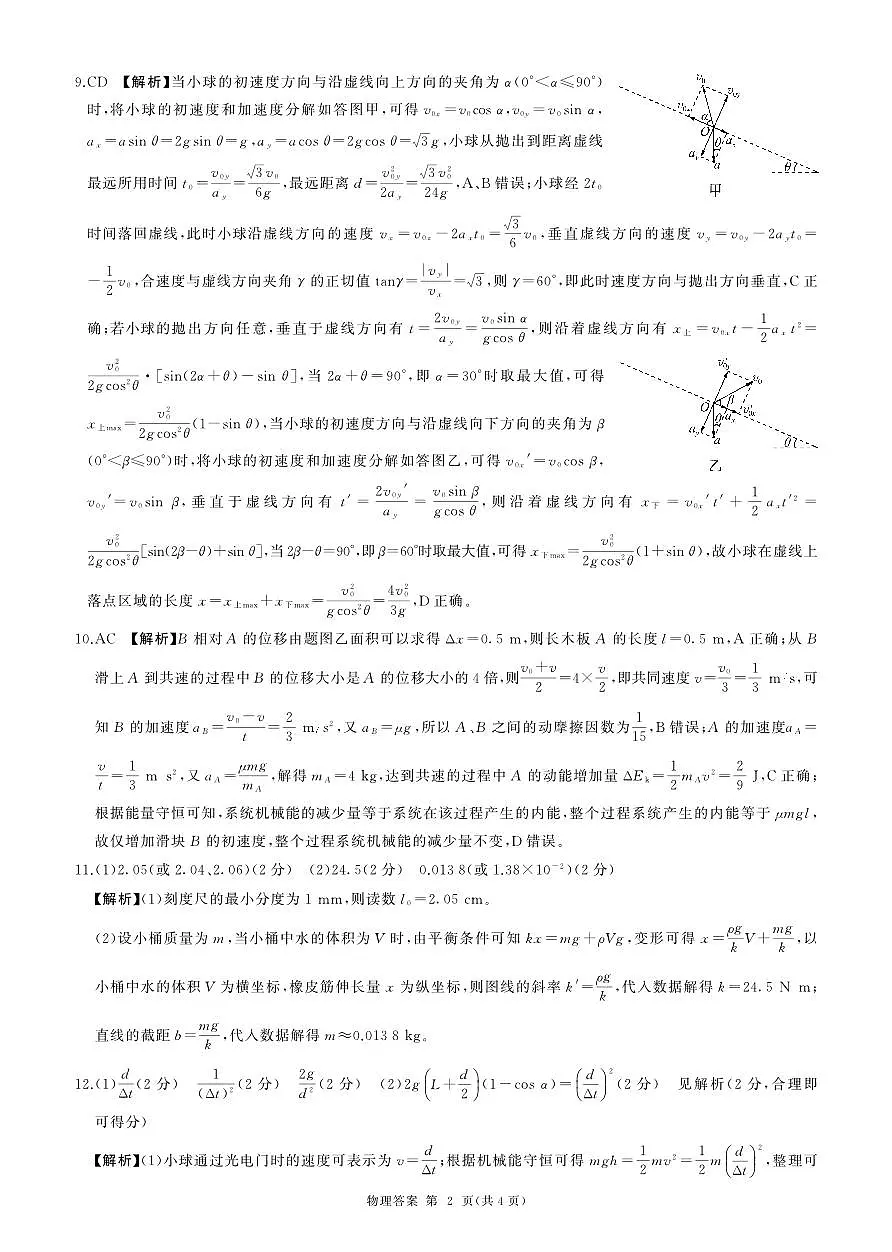 9.CD 【解析】当小球的初速度方向与沿虚线向上方向的夹角为 α(0°<α≤90°)
时,将小球的初速度和加速度分解如答图甲,可得 v₀ₓ=v₀cos α,v₀y=v₀sin α,
aₓ=asin θ=2gsin θ=g,ay=acos θ=2gcos θ=√3g,小球从抛出到距离虚线
最远所用时间 t₀=v₀y/ay=√3v₀/6g,最远距离 d=v₀y²/2ay=√3v₀²/24g,A、B 错误;小球经 2t₀
甲
时间落回虚线,此时小球沿虚线方向的速度 vₓ=v₀ₓ-2aₓt₀=√3/6 v₀,垂直虚线方向的速度 vy=v₀y-2ayt₀=
-1/2 v₀,合速度与虚线方向夹角 γ 的正切值 tanγ=|vy|/vₓ=√3,则 γ=60°,即此时速度方向与抛出方向垂直,C 正
确;若小球的抛出方向任意,垂直于虚线方向有 t=2v₀y/ay=v₀sin α/gcos θ,则沿着虚线方向有 x上=v₀ₓt-1/2 aₓt²=
v₀²/2gcos²θ·[sin(2α+θ)-sin θ],当 2α+θ=90°,即 α=30°时取最大值,可得
x上max=v₀²/2gcos²θ(1-sin θ),当小球的初速度方向与沿虚线向下方向的夹角为 β
(0°<β≤90°)时,将小球的初速度和加速度分解如答图乙,可得 v₀ₓ′=v₀cos β,
乙
v₀y′=v₀sin β,垂直于虚线方向有 t′=2v₀y′/ay=v₀sin β/gcos θ,则沿着虚线方向有 x下=v₀ₓ′t′+1/2 aₓt′²=
v₀²/2gcos²θ[sin(2β-θ)+sin θ],当 2β-θ=90°,即 β=60°时取最大值,可得 x下max=v₀²/2gcos²θ(1+sin θ),故小球在虚线上
落点区域的长度 x=x上max+x下max=v₀²/gcos²θ=4v₀²/3g,D 正确。
10.AC 【解析】B 相对 A 的位移由题图乙面积可以求得 Δx=0.5 m,则长木板 A 的长度 l=0.5 m,A 正确;从 B
滑上 A 到共速的过程中 B 的位移大小是 A 的位移大小的 4 倍,则(v₀+v)/2=4×v/2,即共同速度 v=v₀/3=1/3 m/s,可
知 B 的加速度 aB=(v₀-v)/t=2/3 m/s²,又 aB=μg,所以 A、B 之间的动摩擦因数为1/15,B 错误;A 的加速度aA=
v/t=1/3 m s²,又 aA=μmg/mA,解得 mA=4 kg,达到共速的过程中 A 的动能增加量 ΔEk=1/2 mAv²=2/9 J,C 正确;
根据能量守恒可知,系统机械能的减少量等于系统在该过程产生的内能,整个过程系统产生的内能等于 μmgl,
故仅增加滑块 B 的初速度,整个过程系统机械能的减少量不变,D 错误。
11.(1)2.05(或 2.04、2.06)(2 分) (2)24.5(2 分) 0.013 8(或 1.38×10⁻²)(2 分)
【解析】(1)刻度尺的最小分度为 1 mm,则读数 l₀=2.05 cm。
(2)设小桶质量为 m,当小桶中水的体积为 V 时,由平衡条件可知 kx=mg+ρVg,变形可得 x=ρg/k V+mg/k,以
小桶中水的体积 V 为横坐标,橡皮筋伸长量 x 为纵坐标,则图线的斜率 k′=ρg/k,代入数据解得 k=24.5 N m;
直线的截距 b=mg/k,代入数据解得 m≈0.013 8 kg。
12.(1)d/Δt(2 分) 1/(Δt)²(2 分) 2g/d²(2 分) (2)2g(L+d/2)(1-cos α)=(d/Δt)²(2 分) 见解析(2 分,合理即
可得分)
【解析】(1)小球通过光电门时的速度可表示为 v=d/Δt;根据机械能守恒可得 mgh=1/2 mv²=1/2 m(d/Δt)²,整理可
物理答案 第 2 页(共 4 页)